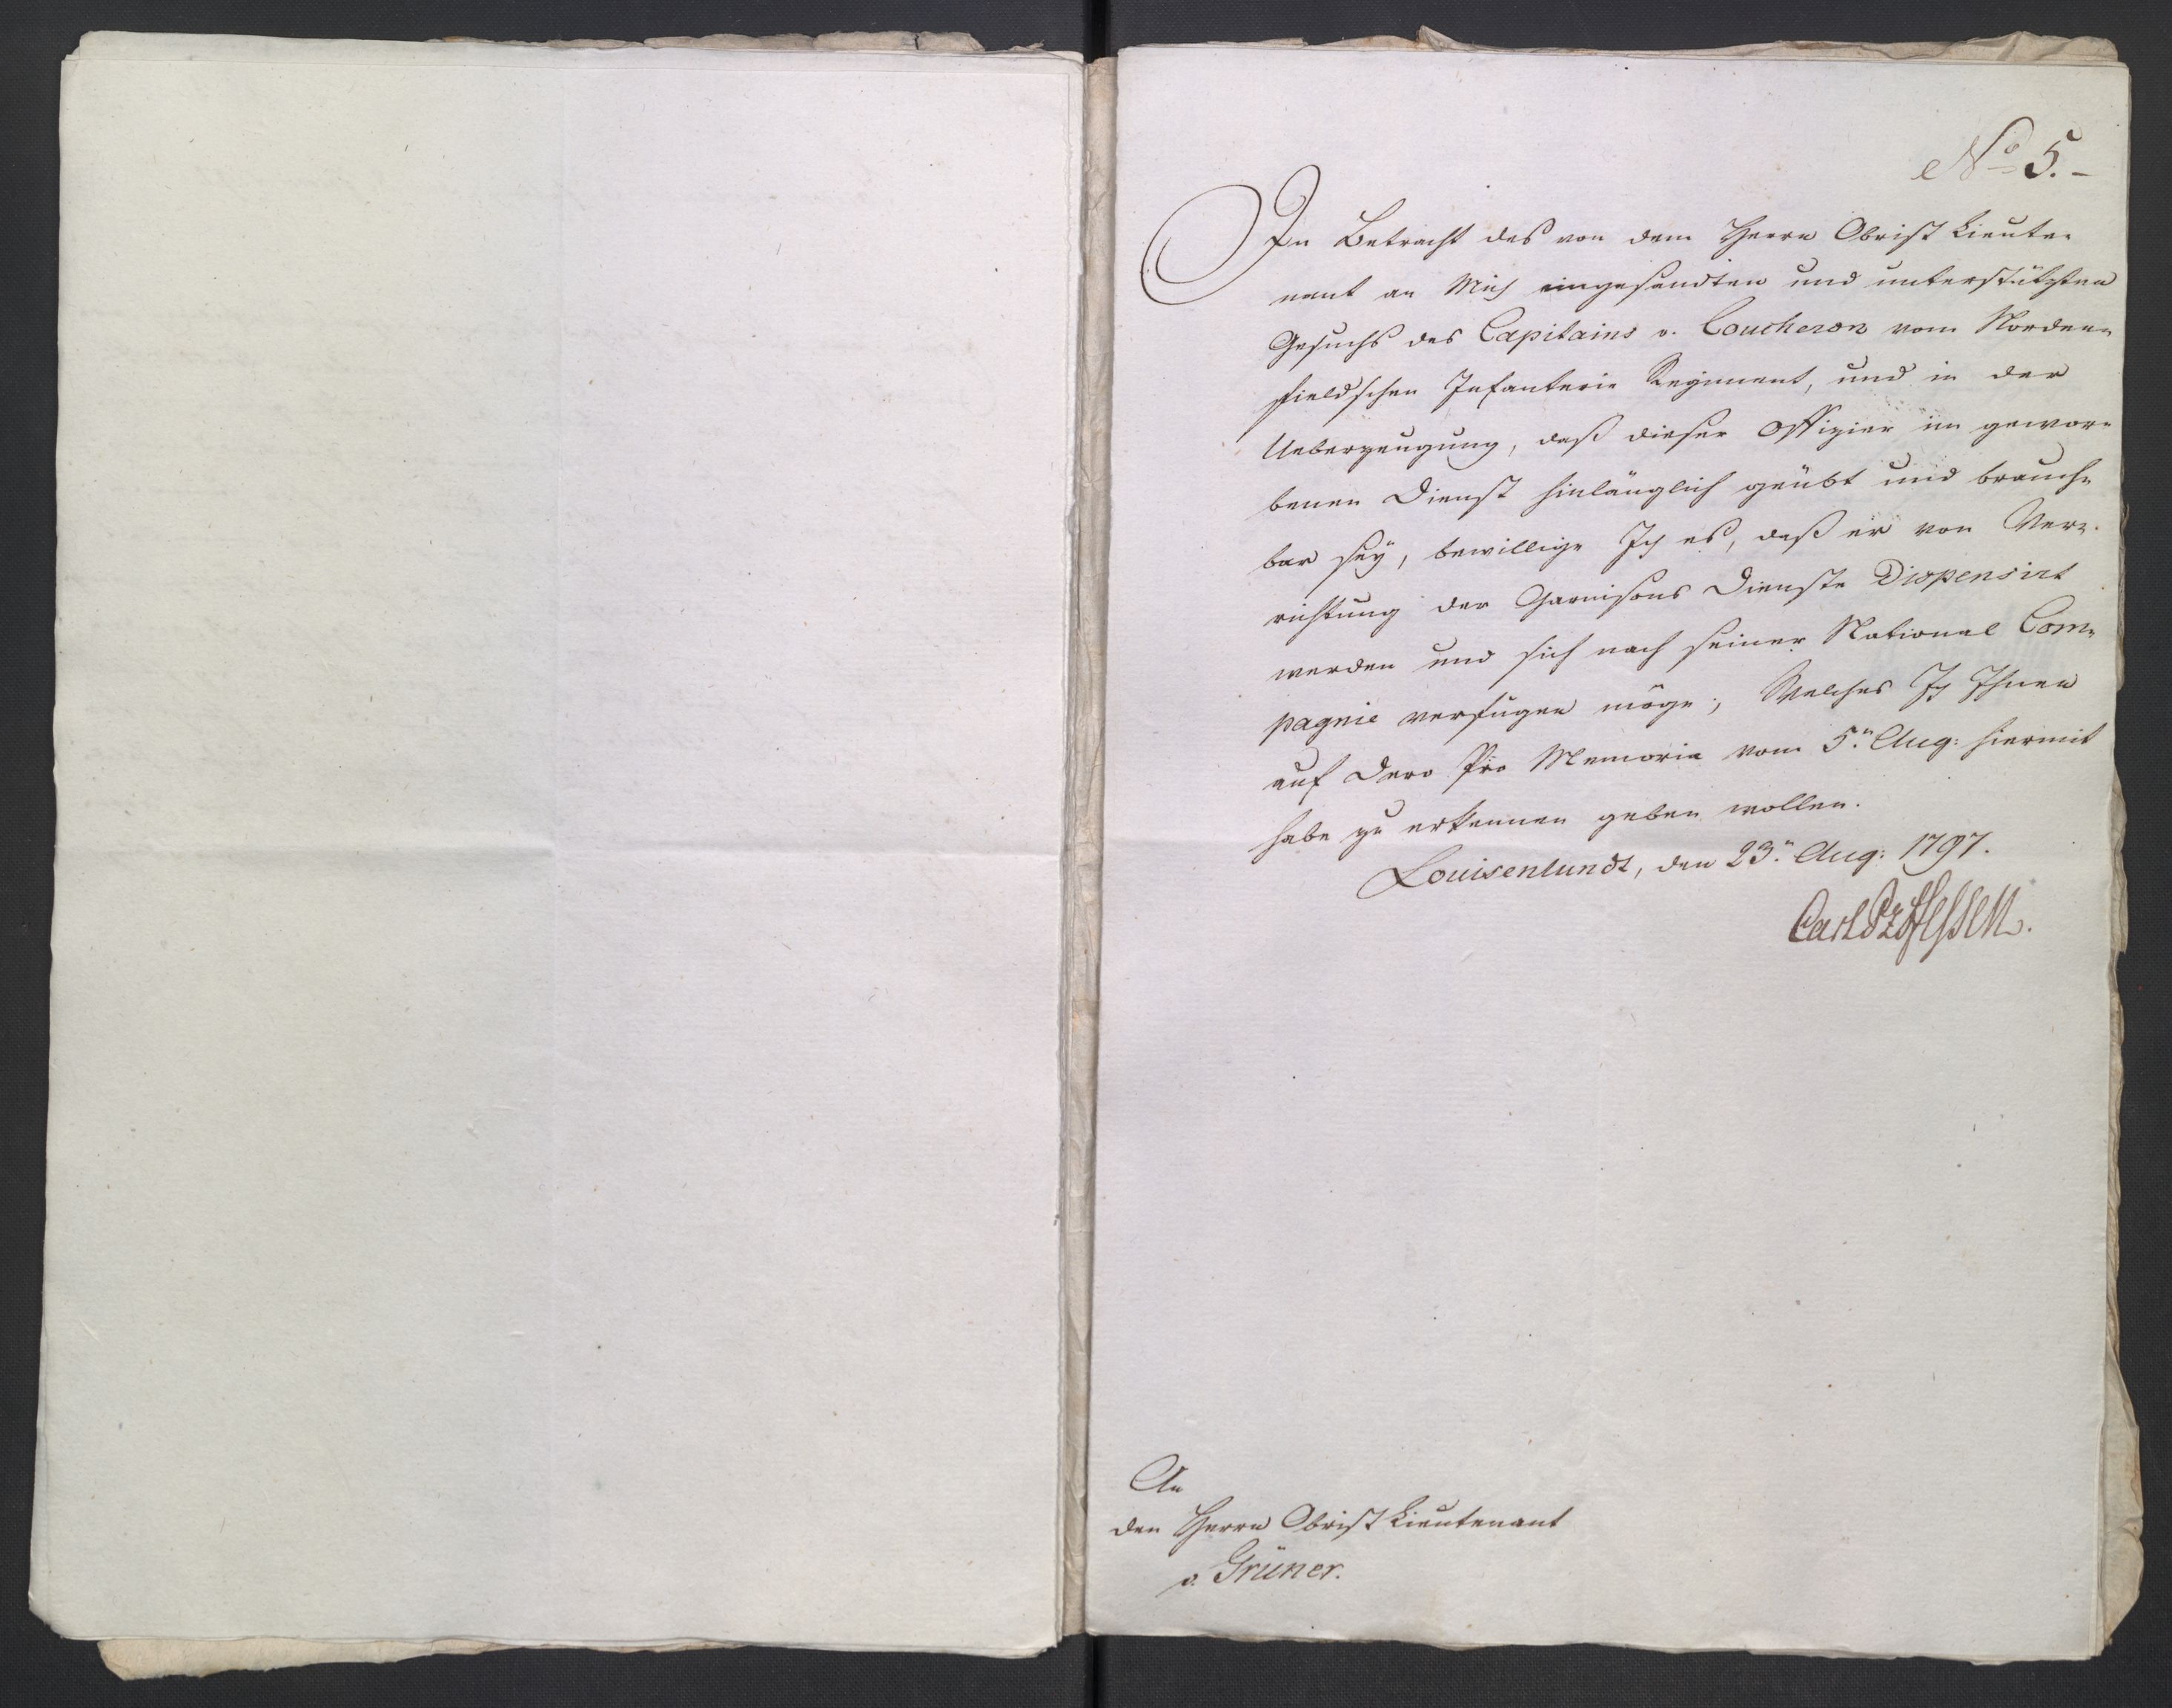 No 5.-
In Betracht des von dem Herrn Obrist Lieute-
nant an Mich eingesandten und unterstützten
Gesuchs des Capitains v. Coucheron vom Norden-
fieldschen Infanterie Regiment, und in der
Ueberzeugung, daß dieser Offizier im gewor-
benen Dienst hinlänglich geübt und brauch-
bar sey, bewillige Ich es, daß er von Ver-
richtung der Garnisons Dienste Dispensirt
werden und sich nach seiner National Com-
pagnie verfügen möge; Welches Ich Ihnen
auf Dero Pro Memoria vom 5.n Aug: hiermit
habe zu erkennen geben wollen.
Louisenlundt, den 23.n Aug: 1797.
Carl PzHessen.
An
den Herrn Obrist Lieutenant
v. Grüner.